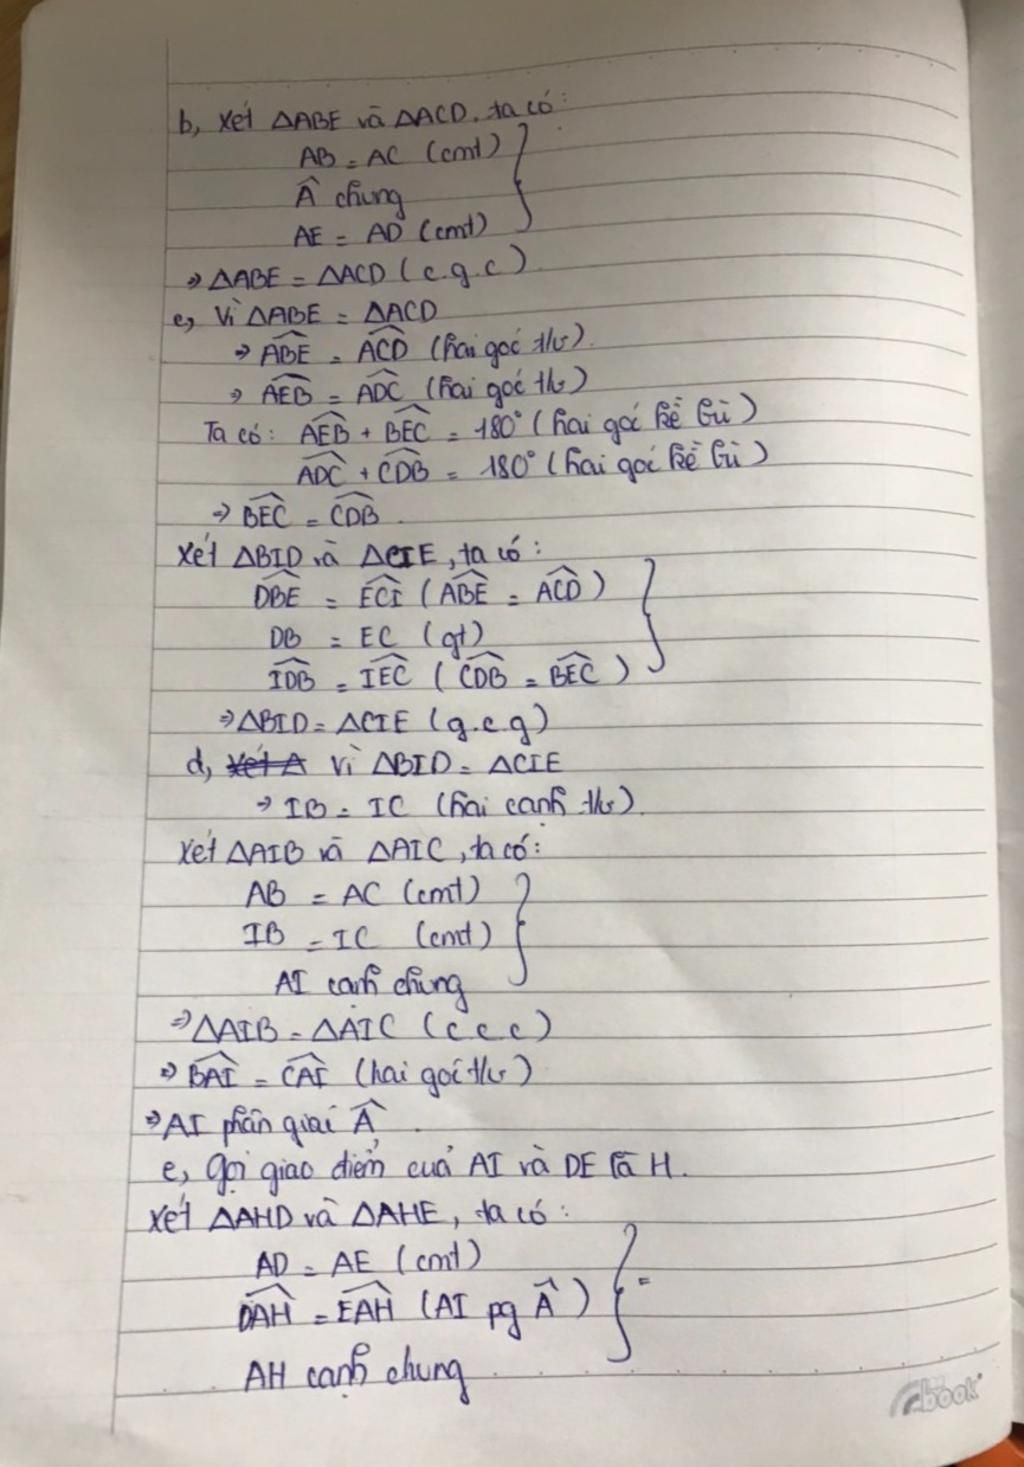 b, Xét ΔABE và ΔACD, ta có:
AB = AC (cmt)
Â chung
AE = AD (cmt)
⇒ ΔABE = ΔACD (c.g.c)
c, Vì ΔABE = ΔACD
⇒ ABE^ = ACD^ (hai góc tư).
⇒ AEB^ = ADC^ (hai góc tư)
Ta có: AEB^ + BEC^ = 180° (hai góc kề bù)
ADC^ + CDB^ = 180° (hai góc kề bù)
⇒ BEC^ = CDB^.
Xét ΔBID và ΔCIE, ta có:
DBE^ = ECI^ (ABE^ = ACD^)
DB = EC (gt)
IDB^ = IEC^ (CDB^ = BEC^)
⇒ ΔBID = ΔCIE (g.c.g)
d, Xét Δ Vì ΔBID = ΔCIE
⇒ IB = IC (hai cạnh tư).
Xét ΔAIB và ΔAIC, ta có:
AB = AC (cmt)
IB = IC (cmt)
AI cạnh chung
⇒ ΔAIB = ΔAIC (c c c)
⇒ BAI^ = CAI^ (hai góc tư)
⇒ AI phân giác Â.
e, Gọi giao điểm của AI và DE là H.
Xét ΔAHD và ΔAHE, ta có:
AD = AE (cmt)
DAH^ = EAH^ (AI pg Â) =
AH cạnh chung
book